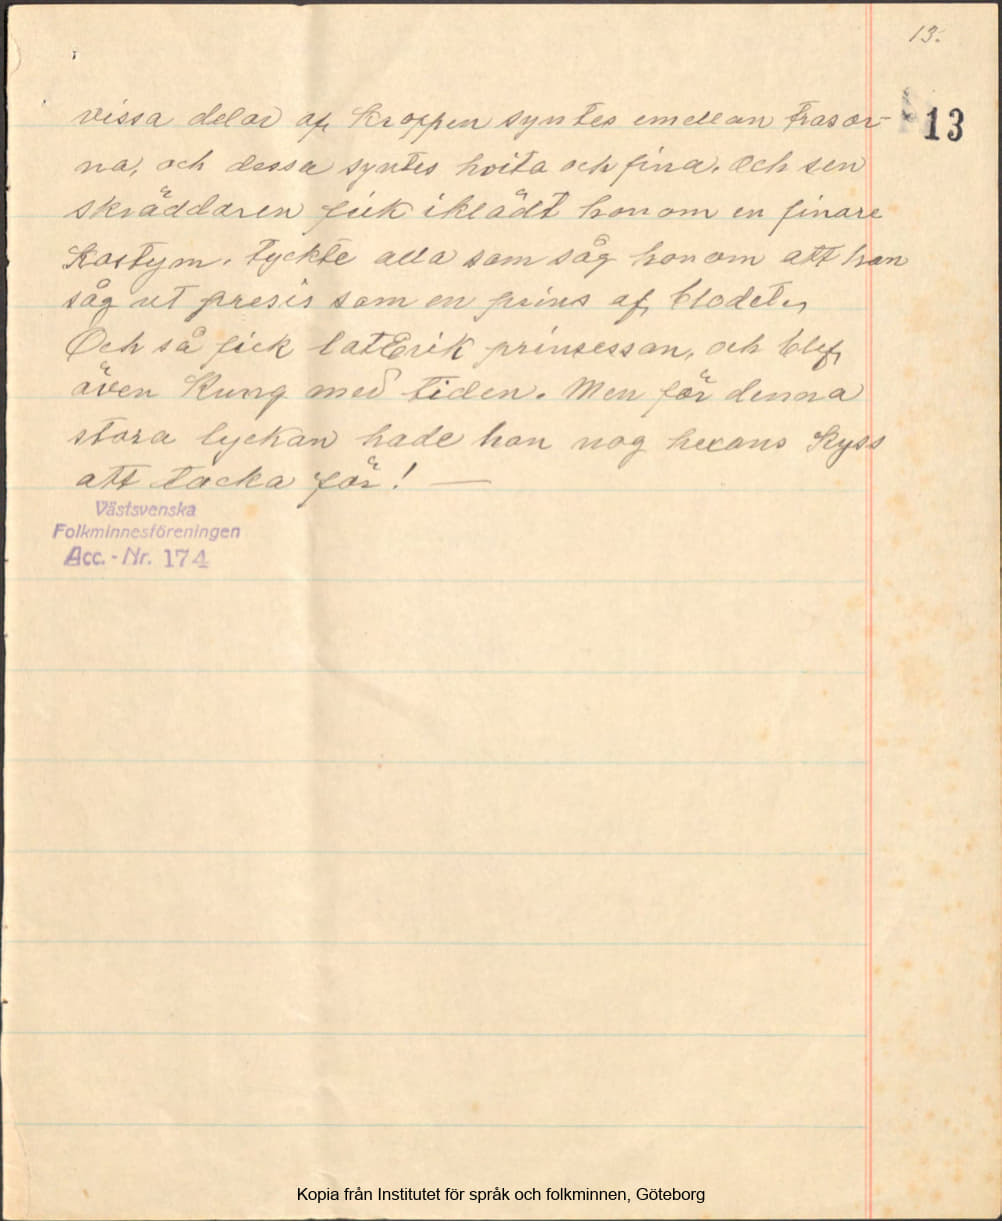 13.
13
vissa delar af kroppen syntes emellan trasor-
na, och dessa syntes hvita och fina. Och sen
skräddaren fick iklädt honom en finare
kostym. tyckte alla som såg honom att han
såg ut presis som en prins af blodet.
Och så fick latErik prinsessan, och blef
även Kung med tiden. Men för denna
stora lyckan hade han nog hexans kyss
att tacka för! —
Västsvenska
Folkminnesföreningen
Acc. - Nr. 174
Kopia från Institutet för språk och folkminnen, Göteborg